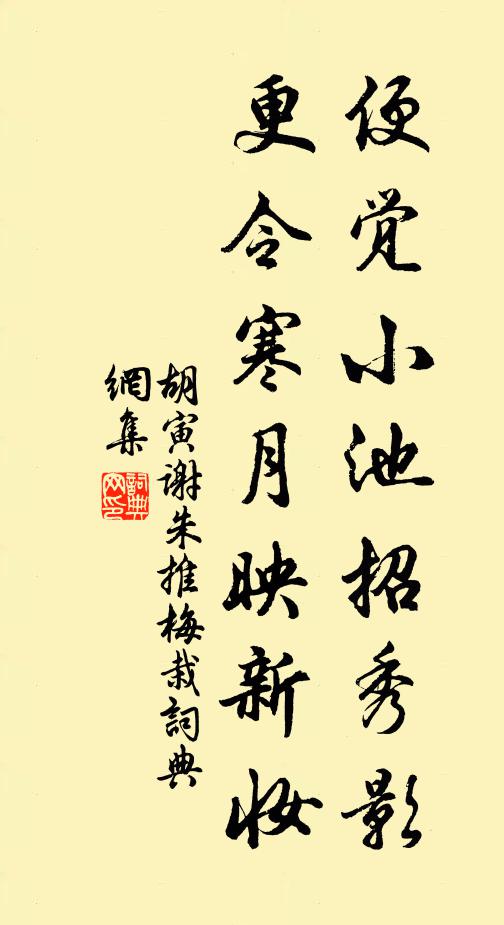 便觉小池招秀影
更令寒月映新妆
胡寅谢朱推梅栽詞典
網集
詞典
网印